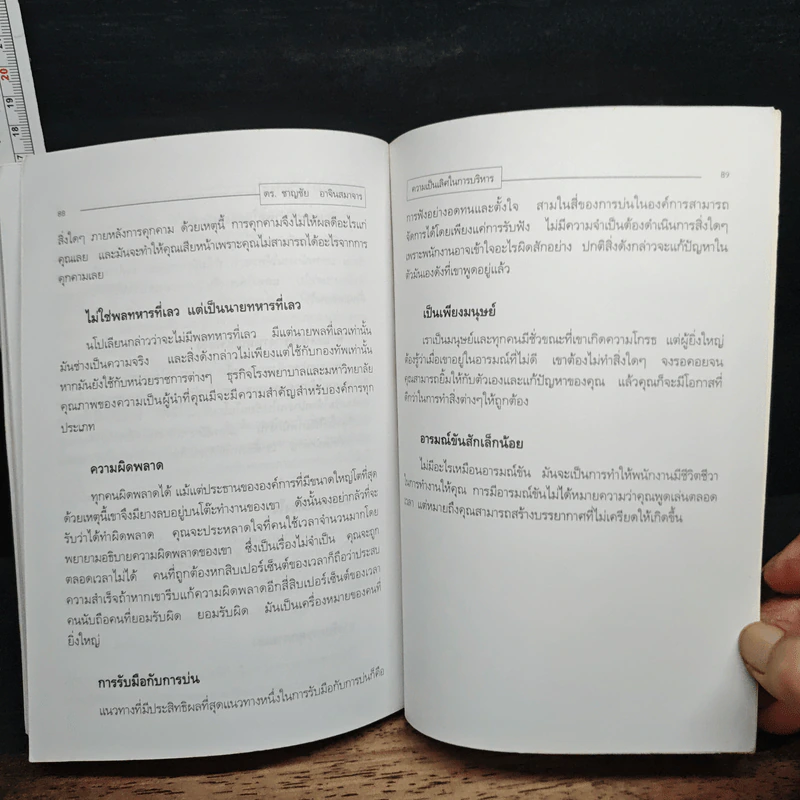 20
19
18
17
88
ดร. ชาญชัย อาจินสมาจาร
สิ่งใดๆ ภายหลังการคุกคาม ด้วยเหตุนี้ การคุกคามจึงไม่ให้ผลดีอะไรแก่
คุณเลย และมันจะทำให้คุณเสียหน้าเพราะคุณไม่สามารถได้อะไรจากการ
คุกคามเลย
ไม่ใช่พลทหารที่เลว แต่เป็นนายทหารที่เลว
นโปเลียนกล่าวว่าจะไม่มีพลทหารที่เลว มีแต่นายพลที่เลวเท่านั้น
มันช่างเป็นความจริง และสิ่งดังกล่าวไม่เพียงแต่ใช้กับกองทัพเท่านั้น
หากมันยังใช้กับหน่วยราชการต่างๆ ธุรกิจโรงพยาบาลและมหาวิทยาลัย
คุณภาพของความเป็นผู้นำที่คุณมีจะมีความสำคัญสำหรับองค์การทุก
ประเภท
ความผิดพลาด
ทุกคนผิดพลาดได้ แม้แต่ประธานขององค์การที่มีขนาดใหญ่โตที่สุด
ด้วยเหตุนี้เขาจึงมียางลบอยู่บนโต๊ะทำงานของเขา ดังนั้นจงอย่ากลัวที่จะ
รับว่าได้ทำผิดพลาด คุณจะประหลาดใจที่คนใช้เวลาจำนวนมากโดย
พยายามอธิบายความผิดพลาดของเขา ซึ่งเป็นเรื่องไม่จำเป็น คุณจะถูก
ตลอดเวลาไม่ได้ คนที่ถูกต้องหกสิบเปอร์เซ็นต์ของเวลาก็ถือว่าประสบ
ความสำเร็จถ้าหากเขารีบแก้ความผิดพลาดอีกสี่สิบเปอร์เซ็นต์ของเวลา
คนนับถือคนที่ยอมรับผิด ยอมรับผิด มันเป็นเครื่องหมายของคนที่
ยิ่งใหญ่
การรับมือกับการบ่น
แนวทางที่มีประสิทธิผลที่สุดแนวทางหนึ่งในการรับมือกับการบ่นก็คือ
ความเป็นเลิศในการบริหาร
89
การฟังอย่างอดทนและตั้งใจ สามในสี่ของการบ่นในองค์การสามารถ
จัดการได้โดยเพียงแค่การรับฟัง ไม่มีความจำเป็นต้องดำเนินการสิ่งใดๆ
เพราะพนักงานอาจเข้าใจอะไรผิดสักอย่าง ปกติสิ่งดังกล่าวจะแก้ปัญหาใน
ตัวมันเองดังที่เขาพูดอยู่แล้ว
เป็นเพียงมนุษย์
เราเป็นมนุษย์และทุกคนมีชั่วขณะที่เขาเกิดความโกรธ แต่ผู้ยิ่งใหญ่
ต้องรู้ว่าเมื่อเขาอยู่ในอารมณ์ที่ไม่ดี เขาต้องไม่ทำสิ่งใดๆ จงรอคอยจน
คุณสามารถยิ้มให้กับตัวเองและแก้ปัญหาของคุณ แล้วคุณก็จะมีโอกาสที่
ดีกว่าในการทำสิ่งต่างๆให้ถูกต้อง
อารมณ์ขันสักเล็กน้อย
ไม่มีอะไรเหมือนอารมณ์ขัน มันจะเป็นการทำให้พนักงานมีชีวิตชีวา
ในการทำงานให้คุณ การมีอารมณ์ขันไม่ได้หมายความว่าคุณพูดเล่นตลอด
เวลา แต่หมายถึงคุณสามารถสร้างบรรยากาศที่ไม่เครียดให้เกิดขึ้น